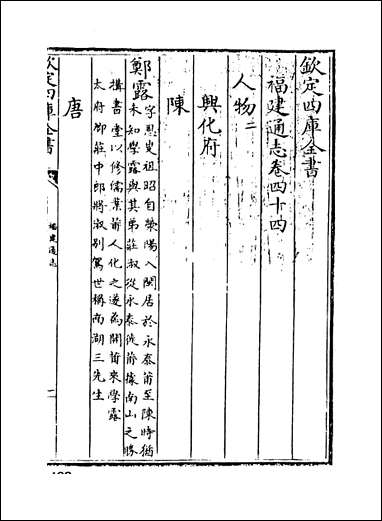 欽定四庫全書
福建通志卷四十四
人物二
興化府
陳
鄭露字思叟祖昭自滎陽入閩居於永泰莆至陳時猶
未知學露與其弟莊叔從永泰徙莆據南山之勝
搆書堂以修儒業莆人化之遂為開莆來學露
太府卿莊中郎將淑别駕世稱南湖三先生
唐
欽定四庫全書
福建通志